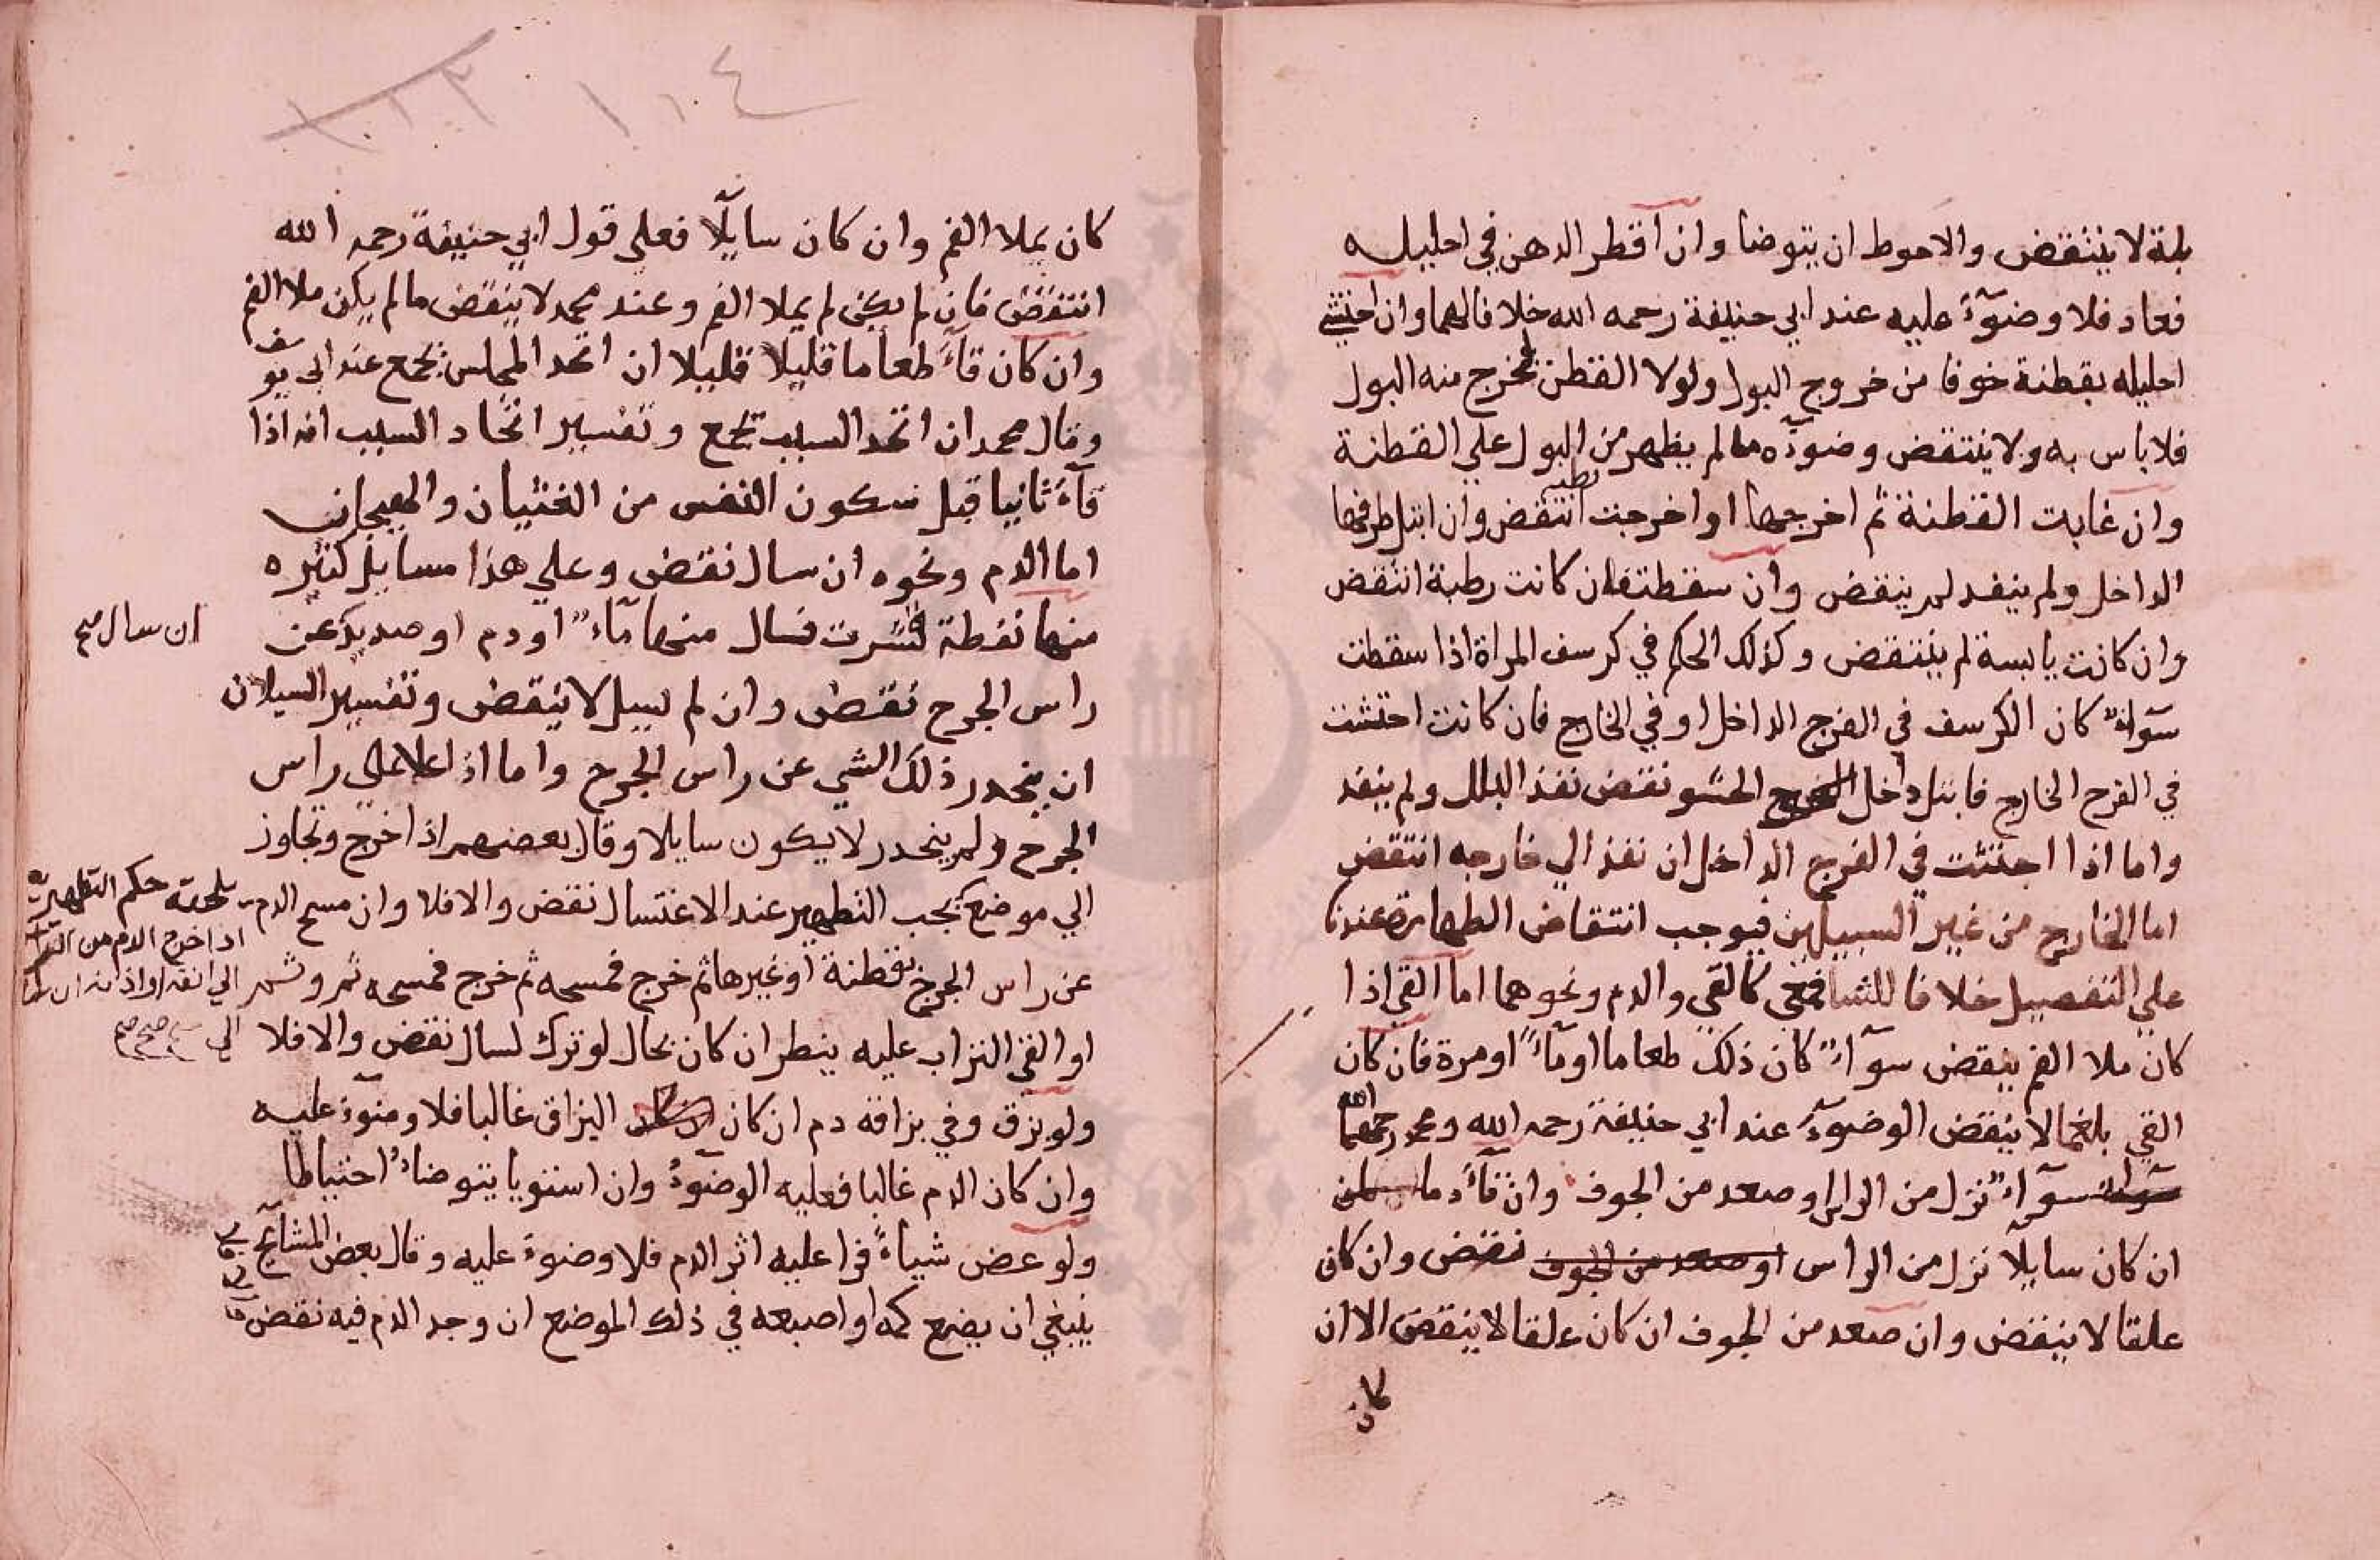 بلة لا ينتقض والاحوط ان يتوضا وان اقطر الدهن في احليله
فعاد فلا وضوء عليه عند ابي حنيفة رحمه الله خلافا لهما وان احتشي
احليله بقطنة خوفا من خروج البول ولولا القطن لخرج منه البول
فلا باس به ولا ينتقض وضوءه ما لم يظهر من البول علي القطنة
وان غابت القطنة ثم اخرجها او اخرجت انتقض وان ابتل طرفها
الداخل ولم ينفد لم ينقض وان سقطت فان كانت رطبة انتقض
وان كانت يابسة لم ينتقض وكذلك الحكم في كرسف المراة اذا سقطت
سواء كان الكرسف في الفرج الداخل او في الخارج فان كانت احتشت
في الفرج الخارج فابتل داخل الحشو نقض نفذ البلل ولم ينفد
واما اذا احتشت في الفرج الداخل ان نفذ الي خارجه انتقض
اما الخارج من غير السبيلين فيوجب انتقاض الطهارة عندنا
علي التفصيل خلافا للشافعي كالقي والدم ونحوهما اما القي اذا
كان ملا الفم ينقض سواء كان ذلك طعاما او ماء او مرة فان كان
القي بلغما لا ينقض الوضوء عند ابي حنيفة رحمه الله ومحمد رحمهما الله
سواء نزل من الراس او صعد من الجوف وان قاء دما
ان كان سايلا نزل من الراس او صعد من الجوف نقض وان كان
علقا لا ينقض وان صعد من الجوف ان كان علقا لا ينقض الا ان
كان
١٠٤ ١٠٣
كان يملا الفم وان كان سايلا فعلي قول ابي حنيفة رحمه الله
انتقض فان لم يكن لم يملا الفم وعند محمد لا ينقض ما لم يكن ملا الفم
وان كان قاء طعاما قليلا قليلا ان اتحد المجلس يجمع عند ابي يوسف
وقال محمد ان اتحد السبب يجمع وتفسير اتحاد السبب انه اذا
قاء ثانيا قبل سكون النفس من الغثيان والهيجان
اما الدم ونحوه ان سال نقض وعلي هذا مسايل كثيره
منها نفطة قشرت فسال منها ماء او دم او صديد عن
ان سال صح
راس الجرح نقض وان لم يسيل لا ينقض وتفسير السيلان
ان ينحدر ذلك الشي عن راس الجرح واما اذا علا علي راس
الجرح ولم ينحدر لا يكون سايلا وقال بعضهم اذا خرج وتجاوز
الي موضع يجب التطهير عند الاغتسال نقض والا فلا وان مسح الدم
يلحقه حكم التطهير
اذا خرج الدم من
الي انفه او اذنه ان سال
الي صح صح
عن راس الجرح بقطنة او غيرها ثم خرج فمسحه ثم خرج فمسحه ثم وثم
او القي التراب عليه ينظر ان كان بحال لو ترك لسال نقض والا فلا
ولو بزق وفي بزاقه دم ان كان البزاق غالبا فلا وضوء عليه
وان كان الدم غالبا فعليه الوضوء وان استويا يتوضاء احتياطا
ولو عض شياء فرا عليه اثر الدم فلا وضوء عليه وقال بعض المشايخ
ينبغي ان يضع كمه او اصبعه في ذلك الموضع ان وجد الدم فيه نقض